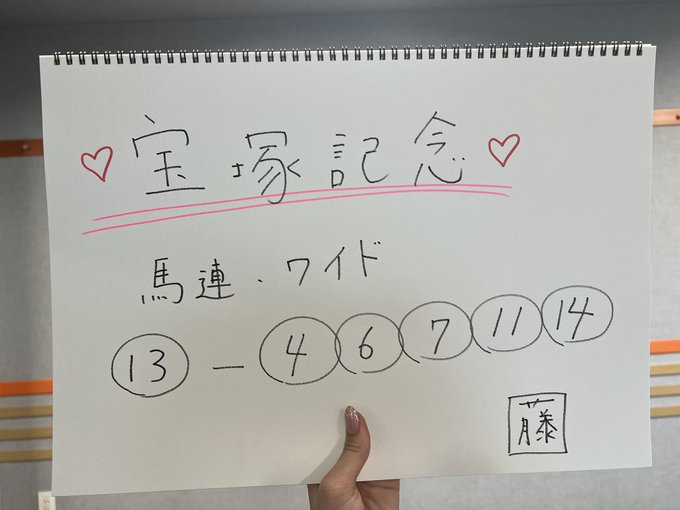 ♡宝塚記念♡
馬連・ワイド
⑬ー④⑥⑦⑪⑭
藤